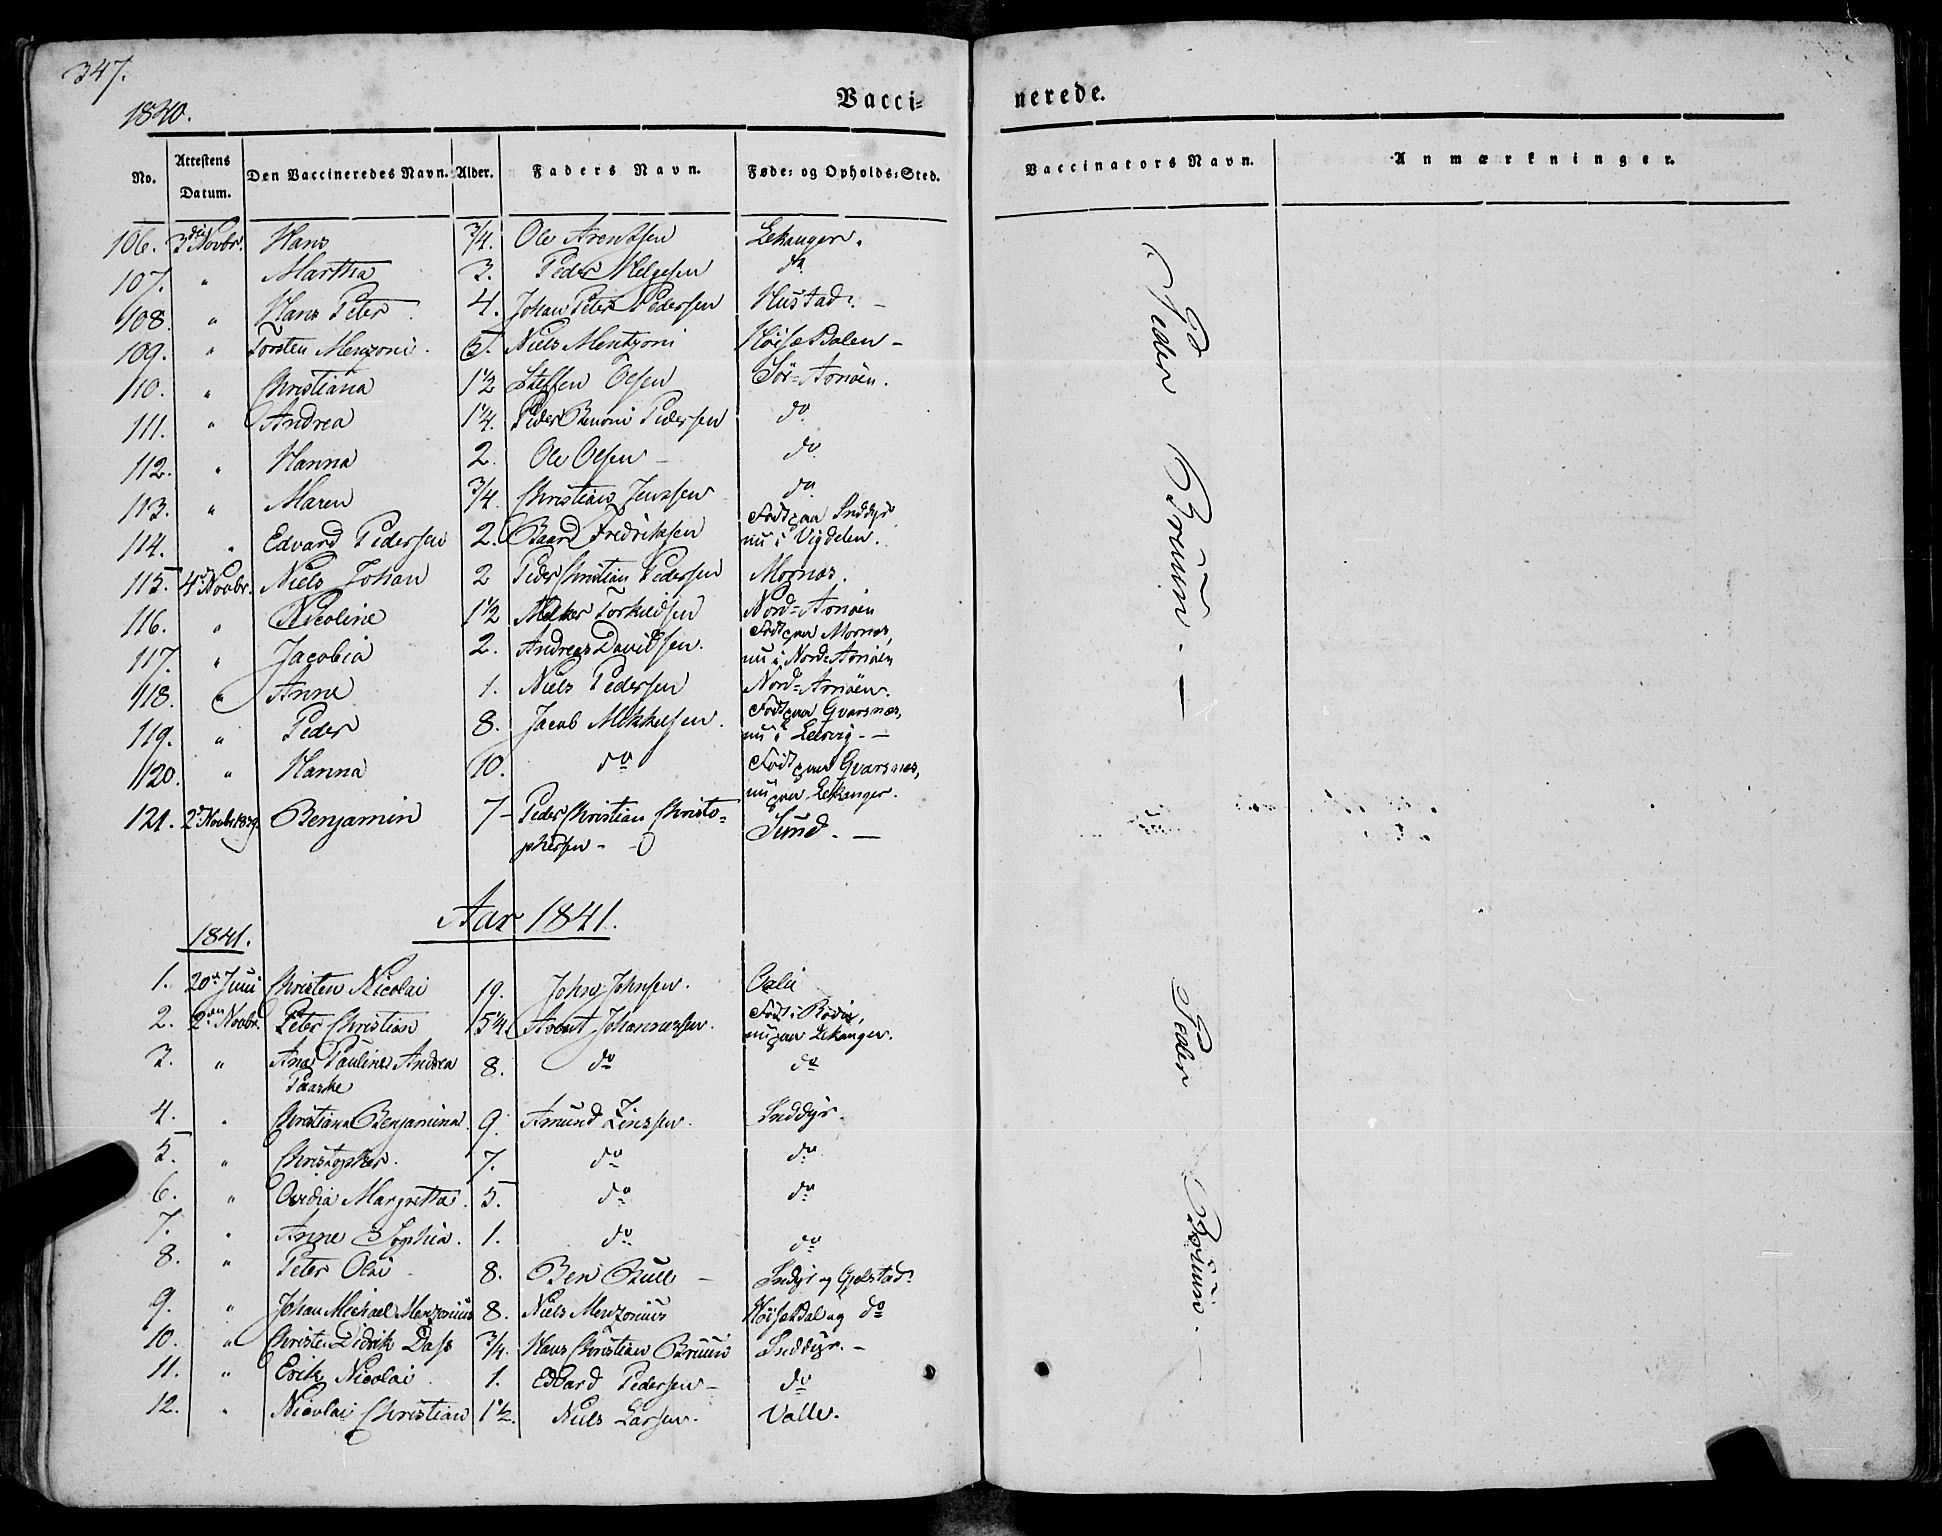 347.
1840.
Vacci=
nerede.
No. Attestens Datum. Den Vaccineredes Navn. Alder. Faders Navn. Føde- og Opholds-Sted. Vaccinators Navn. Anmærkninger.
106. 3die Novbr. Hans 3/4. Ole Arentsen Lekanger.
107. " Martha 3. Peder Helgesen do
108. " Hans Peter 4. Johan Peter Pedersen Hustad. -
109. " Torsten Menzoni. 5. Niels Mentzoni Høisæthalen -
110. " Christiana 1 1/2 Steffen Olsen Sör=Arnöen.
111. " Andrea 1 1/4. Peder Benoni Pedersen do
112. " Hanna 2. Ole Olsen - do
113. " Maren 3/4. Christian Jenssen do
114. " Edvard Pedersen 2. Baard Fredriksen Født paa Inddyr nu i Vigdelen.
115. 4d Novbr. Niels Johan 2 Peder Christian Pedersen Mornæs.
116. " Nicoline 1 1/2 Torkildsen Nord=Arnöen
117. " Jacobia 2. Andreas Davidsen. Født paa Mornæs, nu i Nord=Arnöen
118. " Anne 1. Niels Pedersen Nord=Arnöen.
119. " Peder 8. Jacob Mikkelsen. Født paa Gvarsnæs, nu i Leervig. -
120. " Hanna 10. do Født paa Gvarsnæs, nu paa Lekanger.
121. 2d Novbr 1839. Benjamin 7 - Peder Christian Christo=
phersen - Sund. -
Peder Bruun. -
Aar 1841.
1841.
1. 20d Juni Christen Nicolai 19. John Johnsen.
2. 2den Novbr. Peter Christian 15 1/4. Arent Johannessen. Født i Bodö, nu paa Lekanger.
3. " Ana Pauline Andrea 8. do do
Paaske
4. " Christiana Benjamina. 9. Amund Zinssen. Inddyr.
5. " Christopher. 7. do do
6. " Ovedia Margretha. 5. do do
7. " Anne Sophia. 1. do do
8. " Peter Olai 8. Ben Bull - Indyr og Gjelstad.
9. " Johan Michael Menzonius 8. Niels Menzonius Høisetdal og do
10. " Christen Didrik Dass 3/4. Hans Christian Bruun Inddyr. -
11. " Erik Nicolai 1. Edvard Pedersen - do
12. " Nicolai Christian 1 1/2. Niels Larsen. Valle.
Peder Bruun. -